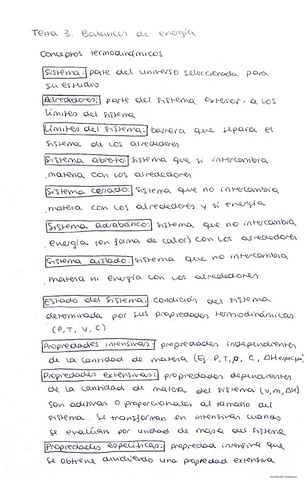 Tema 3. Balances de energía
Conceptos termodinámicos
Sistema: parte del universo seleccionada para
su estudio
Alrededores: parte del sistema exterior a los
límites del sistema
Límites del sistema: barrera que separa el
sistema de los alrededores
Sistema abierto: sistema que si intercambia
materia con los alrededores
Sistema cerrado: sistema que no intercambia
materia con los alrededores y si energía
Sistema adiabático: sistema que no intercambia
energía (en forma de calor) con los alrededores
Sistema aislado: sistema que no intercambia
materia ni energía con los alrededores
Estado del sistema: condición del sistema
determinada por sus propiedades termodinámicas
(P, T, V, C)
Propiedades intensivas: propiedades independientes
de la cantidad de materia (Ej: P, T, ρ, C,
Propiedades extensivas: propiedades dependientes
de la cantidad de materia del sistema (V, m, ΔH)
son aditivas o proporcionales al tamaño del
sistema. Se transforman en intensivas cuando
se evalúan por unidad de masa del sistema
Propiedades específicas: propiedad intensiva que
se obtiene dividiendo una propiedad extensiva